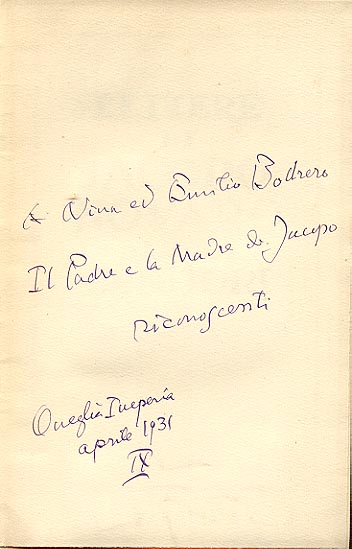 A Nina ed Emilio Bodrero
Il Padre e la Madre di Jacopo
riconoscenti
Oneglia Imperia
aprile 1931
IX